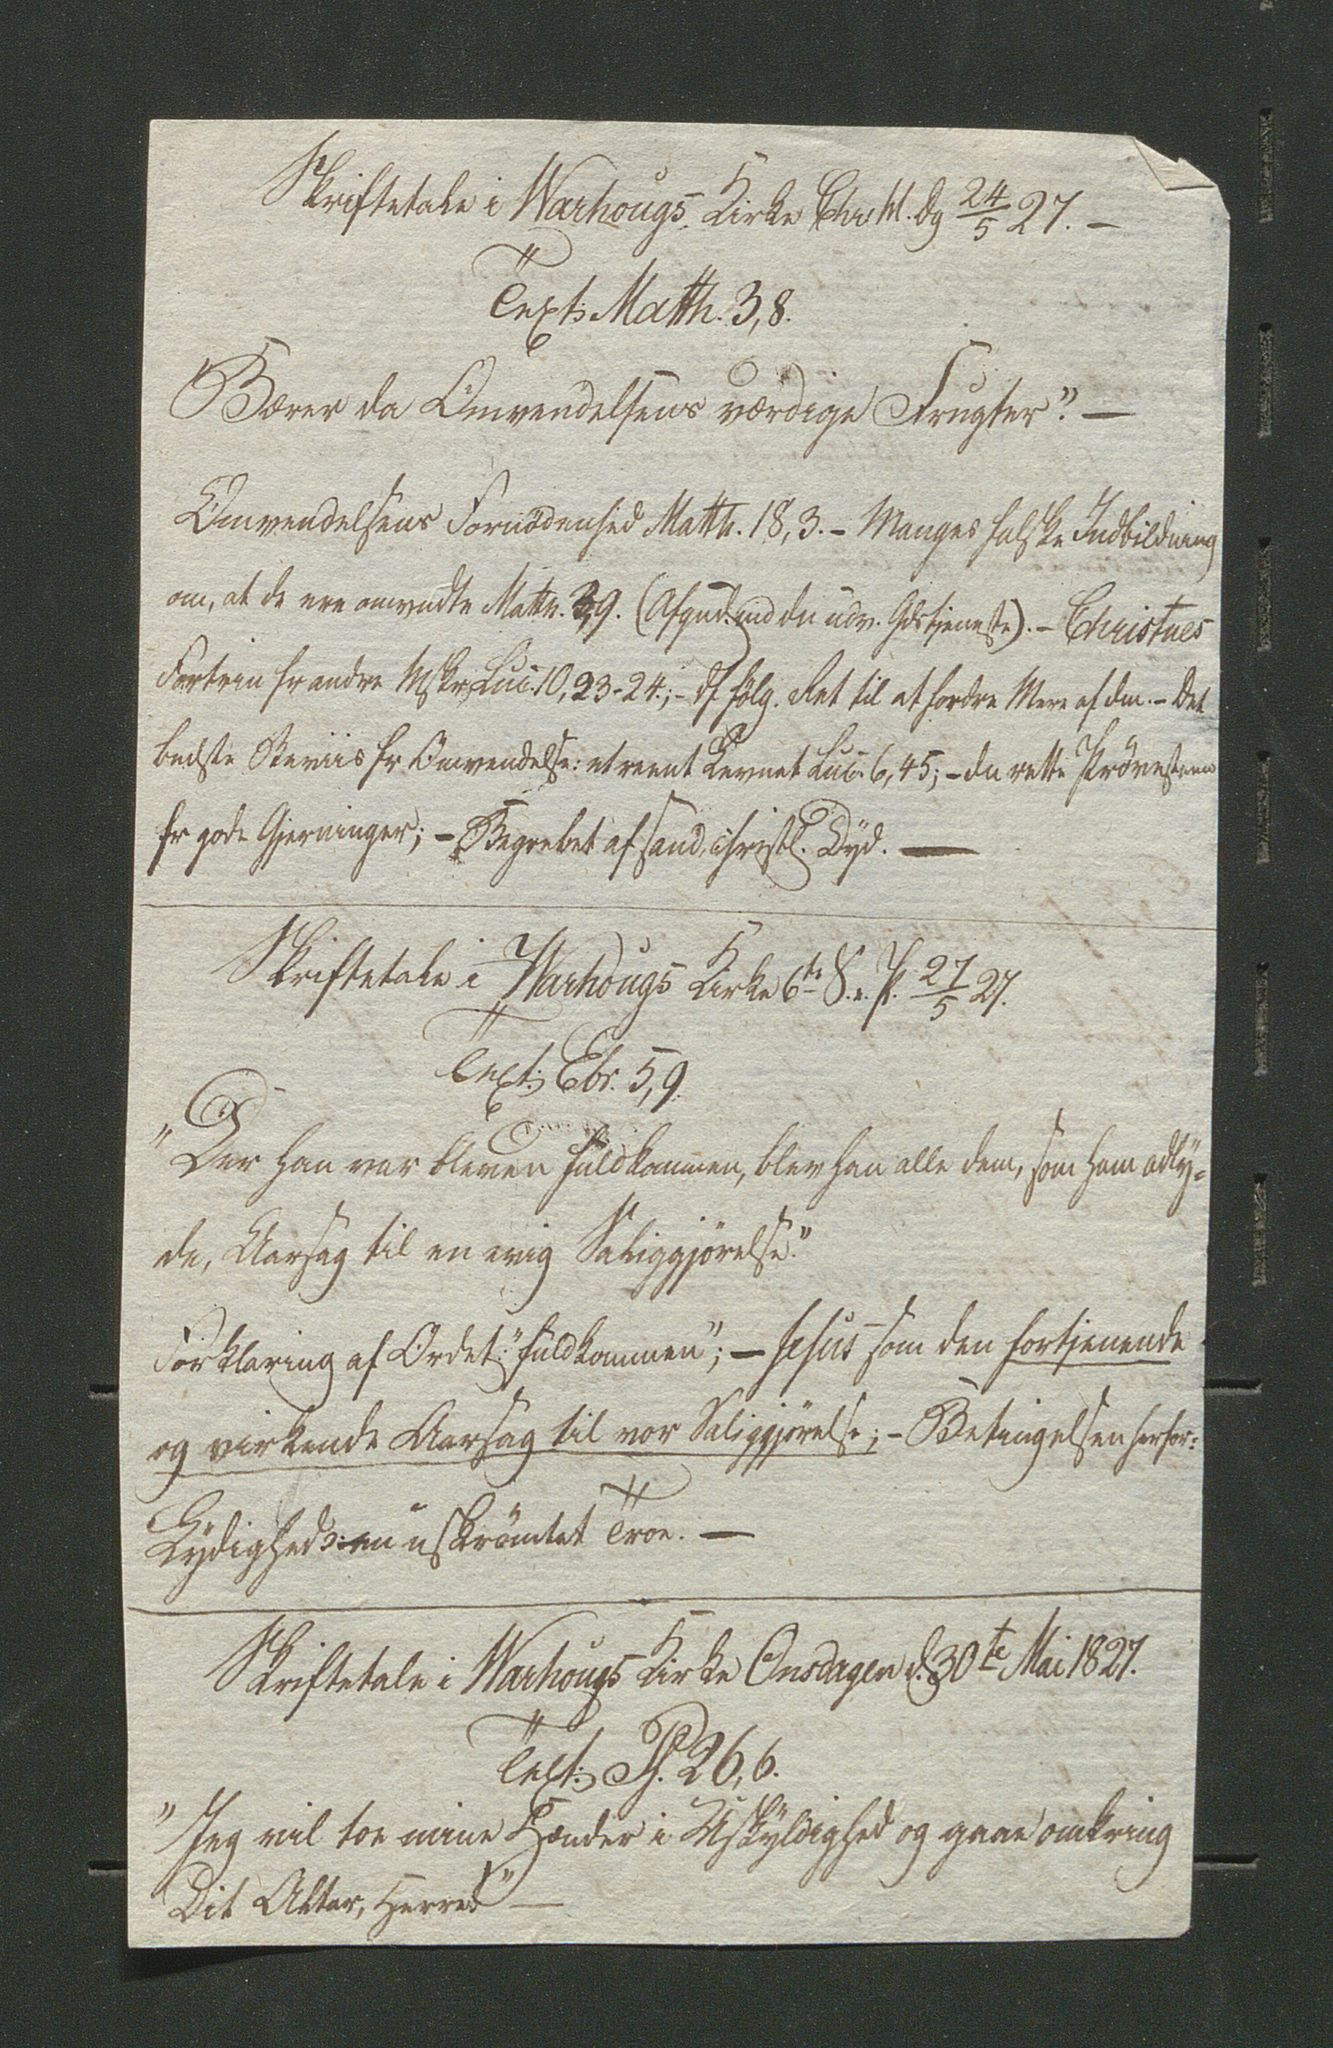 Skriftetale i Warhougs Kirke Chr. Hl. Dg 24/5 27. –
Text: Matth. 3, 8.
Bærer da Omvendelsens værdige Frugter". –
Omvendelsens Fornödenhed Matth. 18, 3. – Manges falske Indbildning
om, at de ere omvendte Matth. 3, 9. (Afgud. med den udv. Gdstjeneste). – Christnes
Fortrin fr andre Mskr Luc. 10, 23-24.; – Df fölg. Ret til at fordre Mere af dm. – Det
bedste Beviis fr Omvendelse: et reent Levnet Luc. 6, 45; – den rette Prövesteen
fr gode Gjerninger; – Begrebet af sand christl. Dyd. —
Skriftetale i Warhougs Kirke 6te S. e. P. 27/5 27.
Text: Ebr. 5, 9.
"Der han var bleven fuldkommen, blev han alle dem, som ham adly-
de, Aarsag til en evig Saliggjörelse."
Forklaring af Ordet: "fuldkommen"; – Jesus som den fortjenende
og virkende Aarsag til vor Saliggjörelse; – Betingelsen herfor:
Lydighed ɔ: en uskrömtet Troe. —
Skriftetale i Warhougs Kirke Onsdagen d. 30te Mai 1827.
Text: Ps. 26, 6.
"Jeg vil toe mine Hænder i Uskyldighed og gaae omkring
Dit Altar, Herre!" —